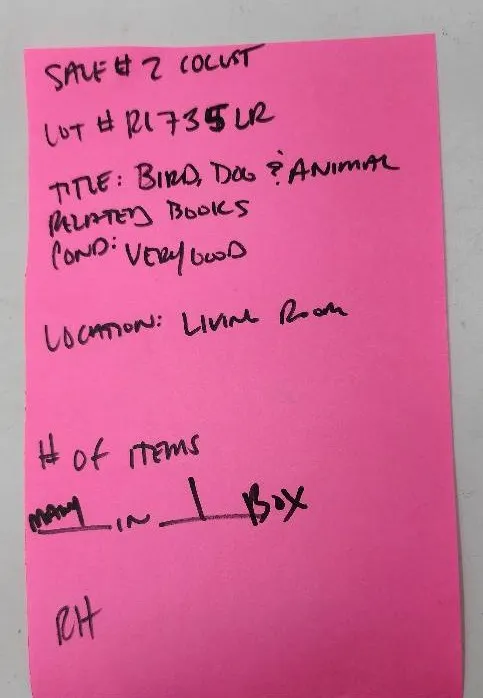 SALE # 2 COLUST
LOT # R1735 LR
TITLE: BIRD, DOG & ANIMAL
RELATED BOOKS
COND: VERY GOOD
LOCATION: LIVING ROOM
# OF ITEMS
MANY IN 1 BOX
RH